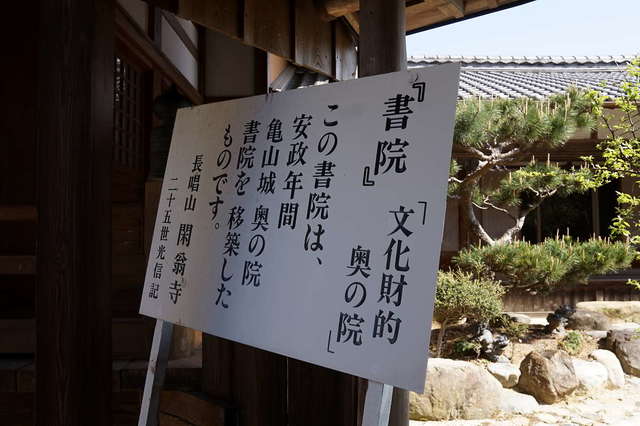 『書院』
「文化財的
奥の院」
この書院は、
安政年間
亀山城 奥の院
書院を 移築した
ものです。
長唱山 閑翁寺
二十五世光信記